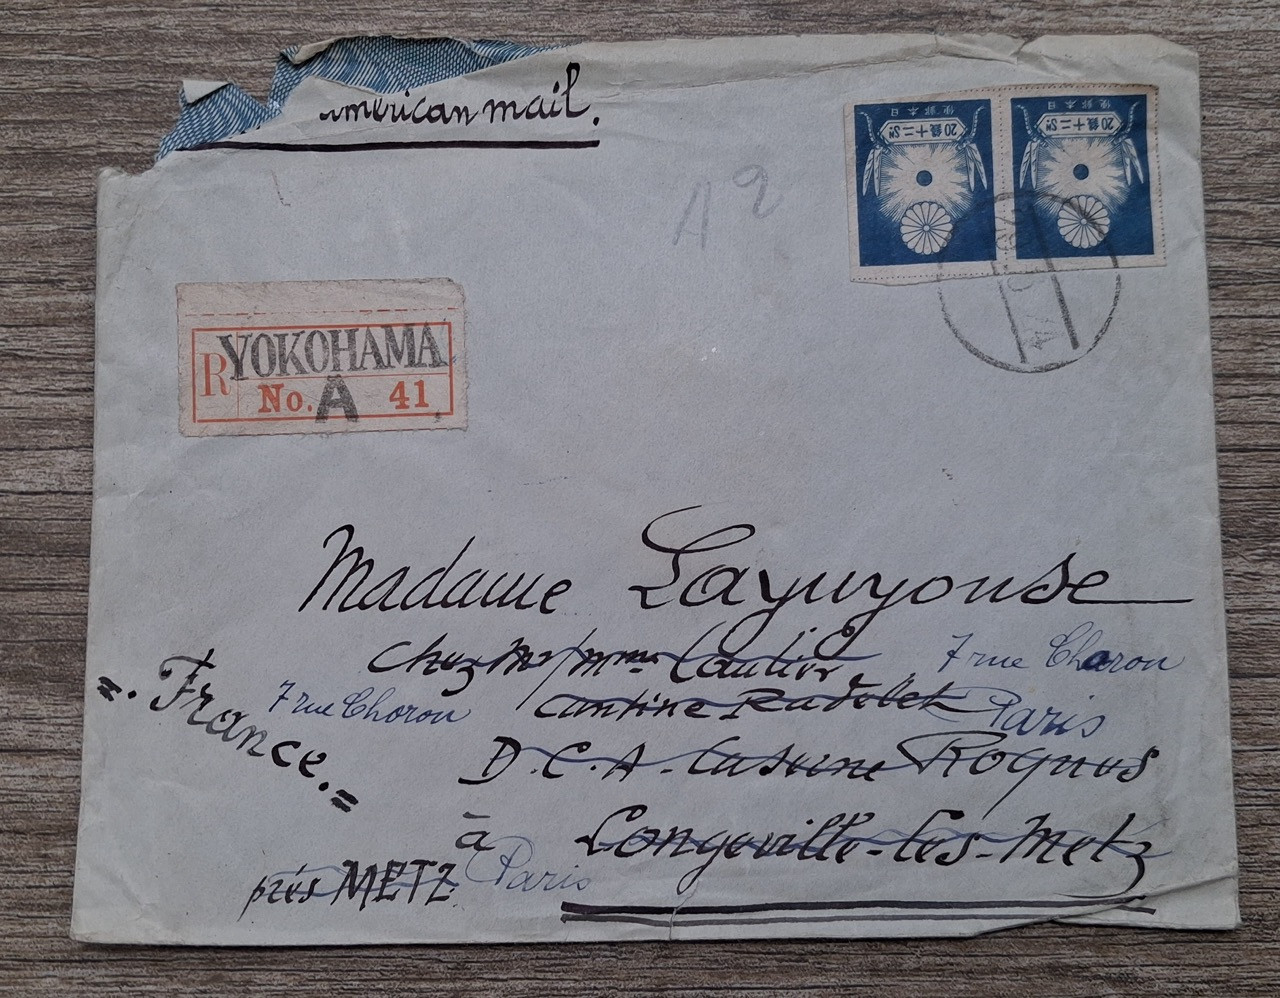 american mail.
日本郵便
20銭十二Sn
日本郵便
20銭十二Sn
A 2
R YOKOHAMA
No. A 41
Madame Layuyouse
chez Mr/mme Caulier
7 rue Choron
"France."
7 rue Choron
cantine Radolek
Paris
D.C.A. Caserne Roques
à Longeville-les-Metz
près METZ.
Paris